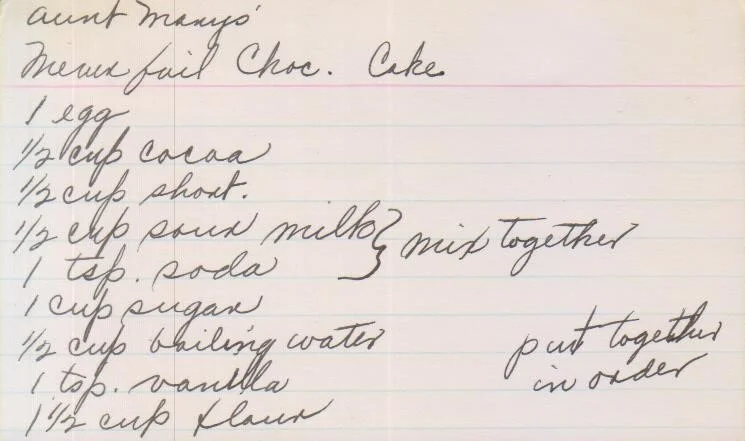 Aunt Marys'
Never fail Choc. Cake
1 egg
1/2 cup cocoa
1/2 cup short.
1/2 cup sour milk } mix together
1 tsp. soda
1 cup sugar
1/2 cup boiling water
1 tsp. vanilla
1 1/2 cup flour
put together
in order